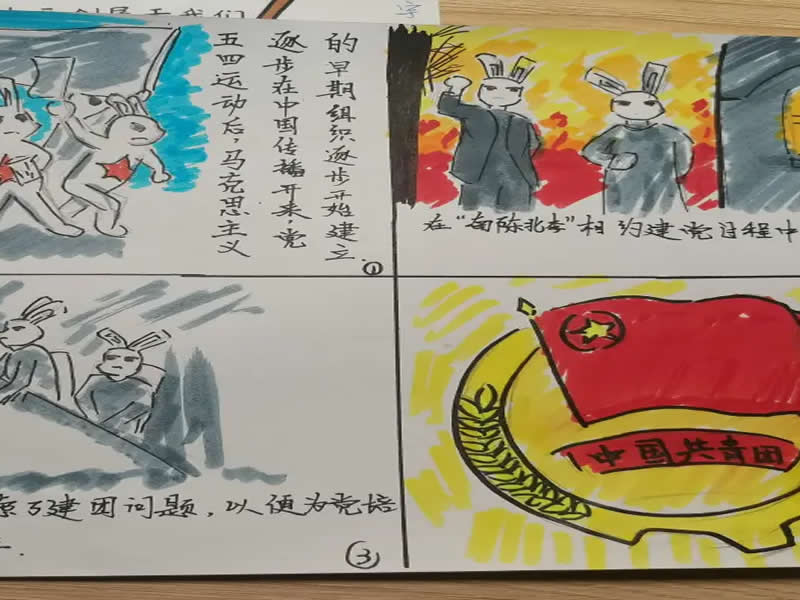 我们
五四运动后，马克思主义
逐步在中国传播开来，党
的早期组织逐步开始建立.
①
在“南陈北李”相约建党日程中
虑了建团问题，以便为党培
③
中国共青团